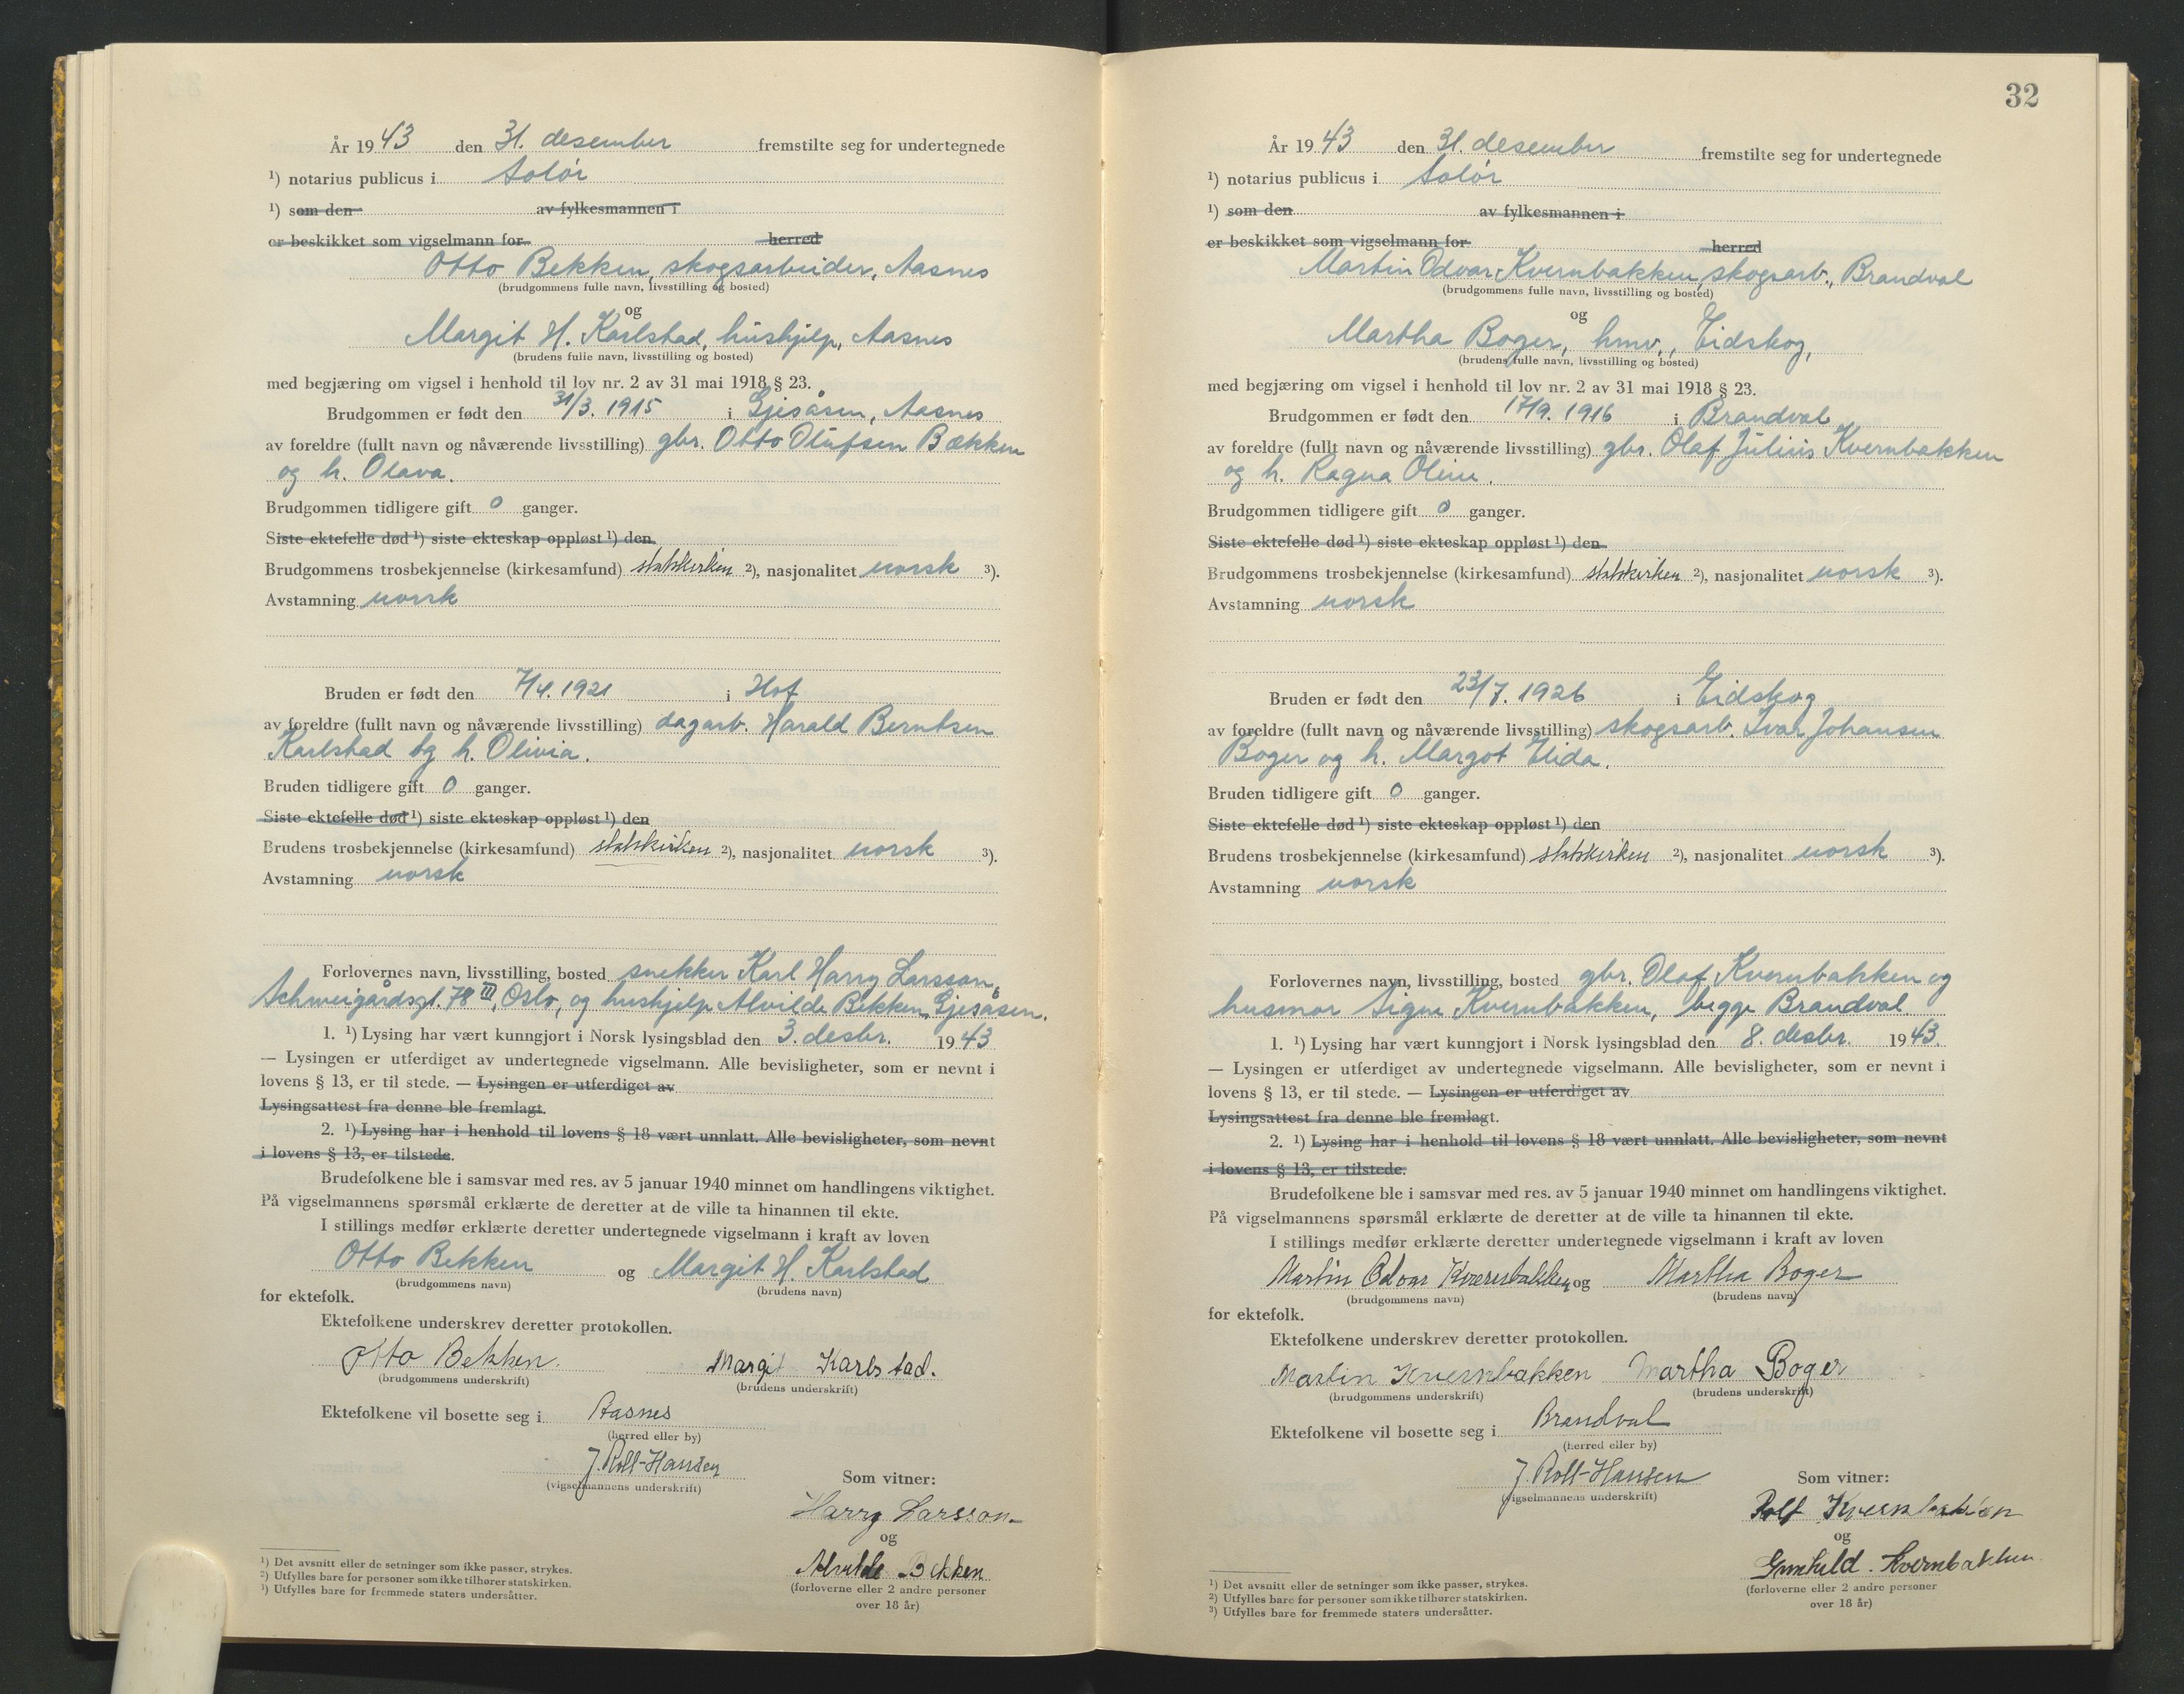 År 1943 den 31. desember fremstilte seg for undertegnede
¹) notarius publicus i Solør
¹) som den av fylkesmannen i
er beskikket som vigselmann for herred
Otto Bekken, skogsarbeider, Aasnes
(brudgommens fulle navn, livsstilling og bosted)
og
Margit H. Karlstad, hushjelp, Aasnes
(brudens fulle navn, livsstilling og bosted)
med begjæring om vigsel i henhold til lov nr. 2 av 31 mai 1918 § 23.
Brudgommen er født den 31/3. 1915 i Gjesåsen, Aasnes
av foreldre (fullt navn og nåværende livsstilling) gbr. Otto Olufsen Bækken
og h. Olava.
Brudgommen tidligere gift 0 ganger.
Siste ektefelle død ¹) siste ekteskap oppløst ¹) den
Brudgommens trosbekjennelse (kirkesamfund) statskirken ²), nasjonalitet norsk ³).
Avstamning norsk
Bruden er født den 7/4. 1921 i Hof
av foreldre (fullt navn og nåværende livsstilling) dagarb. Harald Berntsen
Karlstad og h. Olivia.
Bruden tidligere gift 0 ganger.
Siste ektefelle død ¹) siste ekteskap oppløst ¹) den
Brudens trosbekjennelse (kirkesamfund) statskirken ²), nasjonalitet norsk ³).
Avstamning norsk
Forlovernes navn, livsstilling, bosted snekker Karl Harry Larsson,
Schweigårdsgt. 78 III, Oslo, og hushjelp Alvilde Bekken, Gjesåsen.
1. ¹) Lysing har vært kunngjort i Norsk lysingsblad den 3. desbr. 1943
— Lysingen er utferdiget av undertegnede vigselmann. Alle bevisligheter, som er nevnt i
lovens § 13, er til stede. — Lysingen er utferdiget av
Lysingsattest fra denne ble fremlagt.
2. ¹) Lysing har i henhold til lovens § 18 vært unnlatt. Alle bevisligheter, som nevnt
i lovens § 13, er tilstede.
Brudefolkene ble i samsvar med res. av 5 januar 1940 minnet om handlingens viktighet.
På vigselmannens spørsmål erklærte de deretter at de ville ta hinannen til ekte.
I stillings medfør erklærte deretter undertegnede vigselmann i kraft av loven
Otto Bekken og Margit H. Karlstad
(brudgommens navn) (brudens navn)
for ektefolk.
Ektefolkene underskrev deretter protokollen.
Otto Bekken. Margit Karlstad.
(brudgommens underskrift) (brudens underskrift)
Ektefolkene vil bosette seg i Aasnes
(herred eller by)
J. Roll-Hansen
(vigselmannens underskrift)
Som vitner:
Harry Larsson
og
Alvilde Bekken
(forloverne eller 2 andre personer
over 18 år)
¹) Det avsnitt eller de setninger som ikke passer, strykes.
²) Utfylles bare for personer som ikke tilhører statskirken.
³) Utfylles bare for fremmede staters undersåtter.
32
År 1943 den 31. desember fremstilte seg for undertegnede
¹) notarius publicus i Solør
¹) som den av fylkesmannen i
er beskikket som vigselmann for herred
Martin Odvar Kvernbakken, skogsarb., Brandval
(brudgommens fulle navn, livsstilling og bosted)
og
Martha Boger, hmv., Eidskog,
(brudens fulle navn, livsstilling og bosted)
med begjæring om vigsel i henhold til lov nr. 2 av 31 mai 1918 § 23.
Brudgommen er født den 17/9. 1916 i Brandval
av foreldre (fullt navn og nåværende livsstilling) gbr. Olaf Julius Kvernbakken
og h. Ragna Oline.
Brudgommen tidligere gift 0 ganger.
Siste ektefelle død ¹) siste ekteskap oppløst ¹) den
Brudgommens trosbekjennelse (kirkesamfund) statskirken ²), nasjonalitet norsk ³).
Avstamning norsk
Bruden er født den 23/7. 1926 i Eidskog
av foreldre (fullt navn og nåværende livsstilling) skogsarb. Ivar Johansen
Boger og h. Margot Elida.
Bruden tidligere gift 0 ganger.
Siste ektefelle død ¹) siste ekteskap oppløst ¹) den
Brudens trosbekjennelse (kirkesamfund) statskirken ²), nasjonalitet norsk ³).
Avstamning norsk
Forlovernes navn, livsstilling, bosted gbr. Olaf Kvernbakken og
husmor Signe Kvernbakken, begge Brandval.
1. ¹) Lysing har vært kunngjort i Norsk lysingsblad den 8. desbr. 1943.
— Lysingen er utferdiget av undertegnede vigselmann. Alle bevisligheter, som er nevnt i
lovens § 13, er til stede. — Lysingen er utferdiget av
Lysingsattest fra denne ble fremlagt.
2. ¹) Lysing har i henhold til lovens § 18 vært unnlatt. Alle bevisligheter, som nevnt
i lovens § 13, er tilstede.
Brudefolkene ble i samsvar med res. av 5 januar 1940 minnet om handlingens viktighet.
På vigselmannens spørsmål erklærte de deretter at de ville ta hinannen til ekte.
I stillings medfør erklærte deretter undertegnede vigselmann i kraft av loven
Martin Odvar Kvernbakken og Martha Boger
(brudgommens navn) (brudens navn)
for ektefolk.
Ektefolkene underskrev deretter protokollen.
Martin Kvernbakken Martha Boger
(brudgommens underskrift) (brudens underskrift)
Ektefolkene vil bosette seg i Brandval
(herred eller by)
J. Roll-Hansen
(vigselmannens underskrift)
Som vitner:
Rolf Kvernbakken
og
Gunhild Kvernbakken
(forloverne eller 2 andre personer
over 18 år)
¹) Det avsnitt eller de setninger som ikke passer, strykes.
²) Utfylles bare for personer som ikke tilhører statskirken.
³) Utfylles bare for fremmede staters undersåtter.